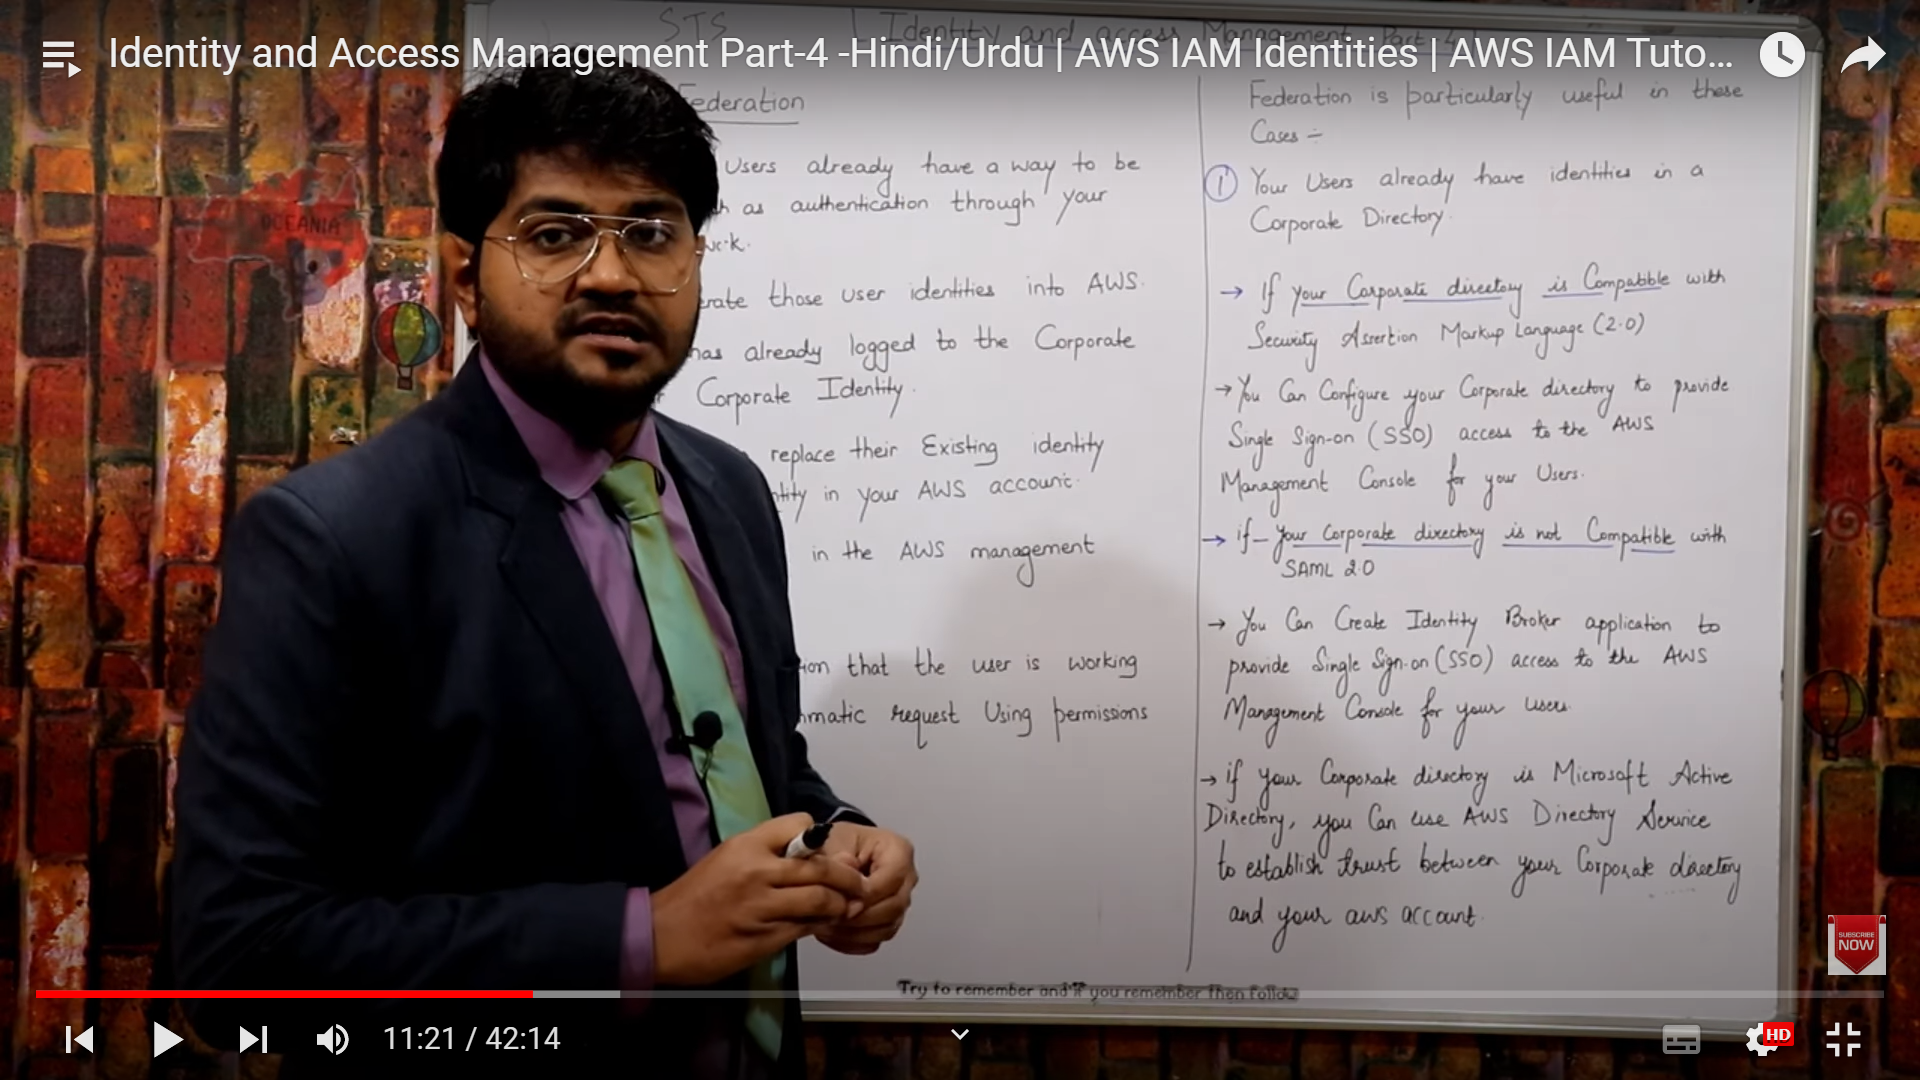 STS
Identity and access Management Part-4
Identity and Access Management Part-4 -Hindi/Urdu | AWS IAM Identities | AWS IAM Tuto...
Federation
Users already have a way to be
as authentication through your
those user identities into AWS.
already logged to the Corporate
Corporate Identity.
replace their Existing identity
in your AWS account.
in the AWS management
that the user is working
request Using permissions
Federation is particularly useful in these
Cases ÷
① Your Users already have identities in a
Corporate Directory.
→ If your Corporate directory is Compatible with
Security Assertion Markup Language (2.0)
→ You Can Configure your Corporate directory to provide
Single Sign-on (SSO) access to the AWS
Management Console for your Users.
→ if - your Corporate directory is not Compatible with
SAML 2.0
→ You Can Create Identity Broker application to
provide Single Sign-on (SSO) access to the AWS
Management Console for your users.
→ if your Corporate directory is Microsoft Active
Directory, you Can use AWS Directory Service
to establish trust between your Corporate directory
and your aws account.
OCEANIA
SUBSCRIBE
NOW
Try to remember and if you remember then follow
11:21 / 42:14
HD